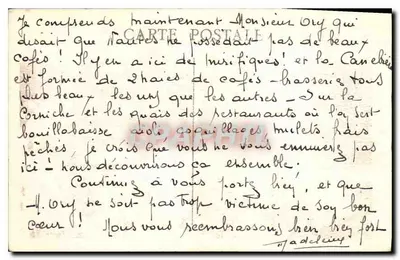 Je comprends maintenant Monsieur Ory qui
disait que Nantes ne possédait pas de beaux
CARTE POSTALE
cafés ! Il y en a ici de mirifiques ! et la Canebière
est formée de 2 haies de cafés - brasseries tous
plus beaux les uns que les autres - Sur la
Corniche et les quais des restaurants où l'on sert
bouillabaisse aïoli coquillages, mulets frais
pêchés, je crois que vous ne vous ennuierez pas
ici - nous découvrirons ça ensemble.
Continuez à vous portez bien, et que
M. Ory ne soit pas trop victime de son bon
coeur ! Nous vous réembrassons bien bien fort
Madeleine